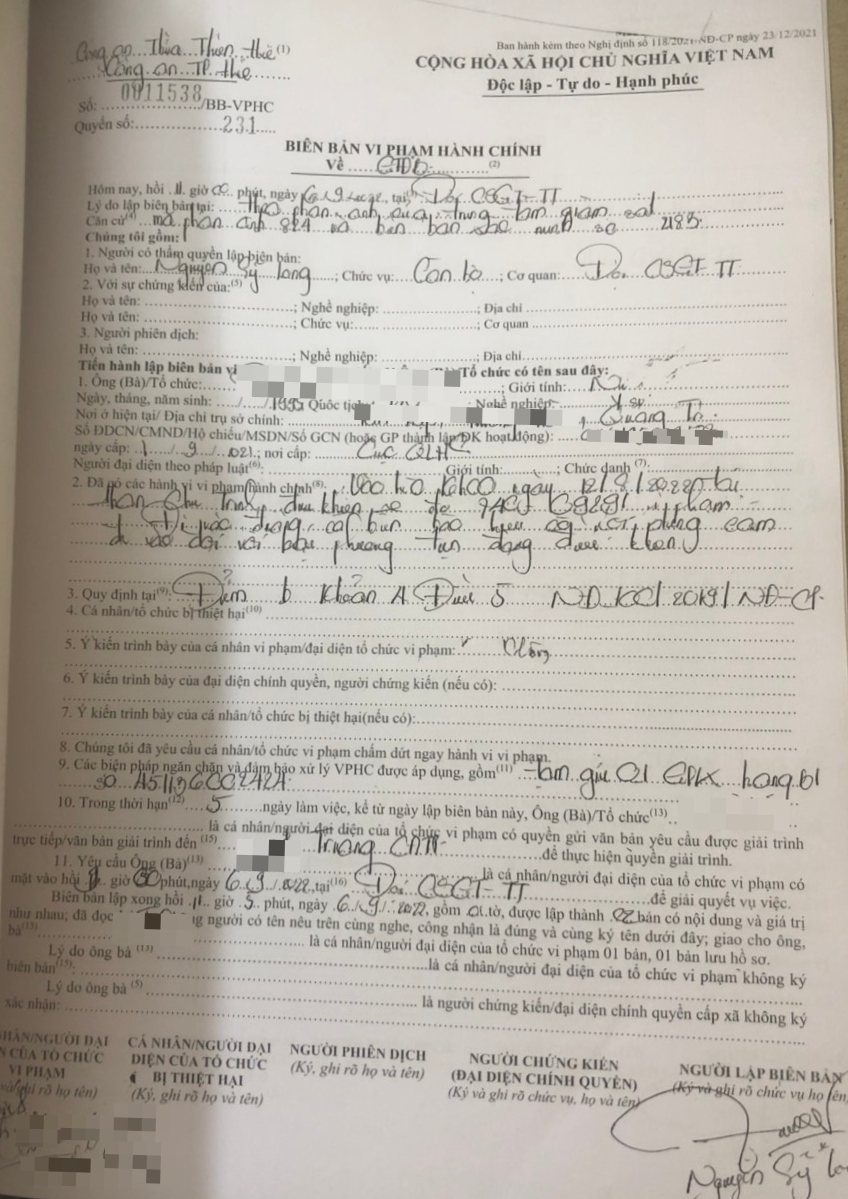 Ban hành kèm theo Nghị định số 118/2021/NĐ-CP ngày 23/12/2021
Công an Thừa Thiên Huế (1)
Công an TP. Huế
CỘNG HÒA XÃ HỘI CHỦ NGHĨA VIỆT NAM
Độc lập - Tự do - Hạnh phúc
Số: 0011538/BB-VPHC
Quyển số: 231
BIÊN BẢN VI PHẠM HÀNH CHÍNH
Về GTĐB (2)
Hôm nay, hồi 11 giờ 00 phút, ngày 6/9/2022, tại Đội CSGT-TT
Lý do lập biên bản tại: Theo phản ánh của trung tâm giám sát
Căn cứ mã phản ánh và biên bản xác minh số 2183
Chúng tôi gồm:
1. Người có thẩm quyền lập biên bản:
Họ và tên: Nguyễn Sỹ Long; Chức vụ: Cán bộ; Cơ quan: Đội CSGT-TT
2. Với sự chứng kiến của:(5)
Họ và tên: ; Nghề nghiệp: ; Địa chỉ
Họ và tên: ; Chức vụ: ; Cơ quan
3. Người phiên dịch:
Họ và tên: ; Nghề nghiệp: ; Địa chỉ
Tiến hành lập biên bản Tổ chức có tên sau đây:
1. Ông (Bà)/Tổ chức: ; Giới tính:
Ngày, tháng, năm sinh: Quốc tịch Nghề nghiệp:
Nơi ở hiện tại/ Địa chỉ trụ sở chính: Quảng Trị
Số ĐDCN/CMND/Hộ chiếu/MSDN/Số GCN (hoặc GP thành lập/ĐK hoạt động):
ngày cấp: 1/9/2021; nơi cấp: Cục QLHC
Người đại diện theo pháp luật(6): Giới tính: ; Chức danh (7):
2. Đã có các hành vi vi phạm hành chính(8): Vào hồi 16h00 ngày 12/8/2022 tại
Phan Chu Trinh, điều khiển xe vi phạm:
Đi vào đường có biển báo hiệu có nội dung cấm
đi vào đối với loại phương tiện đang điều khiển
3. Quy định tại(9): Điểm b Khoản 4 Điều 5 NĐ 100/2019/NĐ-CP
4. Cá nhân/tổ chức bị thiệt hại(10)
5. Ý kiến trình bày của cá nhân vi phạm/đại diện tổ chức vi phạm: không
6. Ý kiến trình bày của đại diện chính quyền, người chứng kiến (nếu có):
7. Ý kiến trình bày của cá nhân/tổ chức bị thiệt hại(nếu có):
8. Chúng tôi đã yêu cầu cá nhân/tổ chức vi phạm chấm dứt ngay hành vi vi phạm.
9. Các biện pháp ngăn chặn và đảm bảo xử lý VPHC được áp dụng, gồm(11) Tạm giữ 01 GPLX hạng B1
số
10. Trong thời hạn(12) 5 ngày làm việc, kể từ ngày lập biên bản này, Ông (Bà)/Tổ chức(13)
là cá nhân/người đại diện của tổ chức vi phạm có quyền gửi văn bản yêu cầu được giải trình
trực tiếp/văn bản giải trình đến (15) Trưởng CATP để thực hiện quyền giải trình.
11. Yêu cầu Ông (Bà)(13) là cá nhân/người đại diện của tổ chức vi phạm có
mặt vào hồi giờ phút, ngày 6/9/2022, tại(16) Đội CSGT-TT để giải quyết vụ việc.
Biên bản lập xong hồi 11 giờ 5 phút, ngày 6/9/2022, gồm 01 tờ, được lập thành 02 bản có nội dung và giá trị
như nhau; đã đọc người có tên nêu trên cùng nghe, công nhận là đúng và cùng ký tên dưới đây; giao cho ông,
bà(13) là cá nhân/người đại diện của tổ chức vi phạm 01 bản, 01 bản lưu hồ sơ.
Lý do ông bà (13) là cá nhân/người đại diện của tổ chức vi phạm không ký
biên bản(15):
Lý do ông bà (5) là người chứng kiến/đại diện chính quyền cấp xã không ký
xác nhận:
NHÂN/NGƯỜI ĐẠI
N CỦA TỔ CHỨC
VI PHẠM
và ghi rõ họ tên)
CÁ NHÂN/NGƯỜI ĐẠI
DIỆN CỦA TỔ CHỨC
BỊ THIỆT HẠI
(Ký, ghi rõ họ và tên)
NGƯỜI PHIÊN DỊCH
(Ký, ghi rõ họ và tên)
NGƯỜI CHỨNG KIẾN
(ĐẠI DIỆN CHÍNH QUYỀN)
(Ký và ghi rõ chức vụ, họ và tên)
NGƯỜI LẬP BIÊN BẢN
(Ký và ghi rõ chức vụ họ và tên)
Nguyễn Sỹ Lo